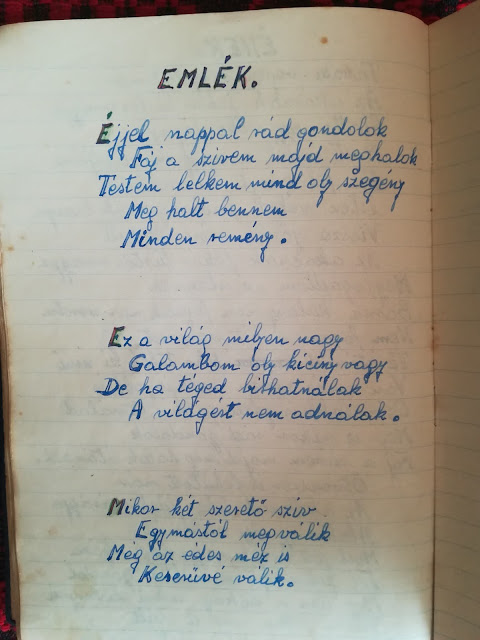 EMLÉK.
Éjjel nappal rád gondolok
Fáj a szivem majd meghalok
Testem lelkem mind oly szegény
Meg halt bennem
Minden remény.
Ez a világ miljen nagy
Galambom oly kiciny vagy
De ha téged birhatnálak
A világért nem adnálak.
Mikor két szerető sziv
Egymástól megválik
Még az édes méz is
Keserüvé válik.